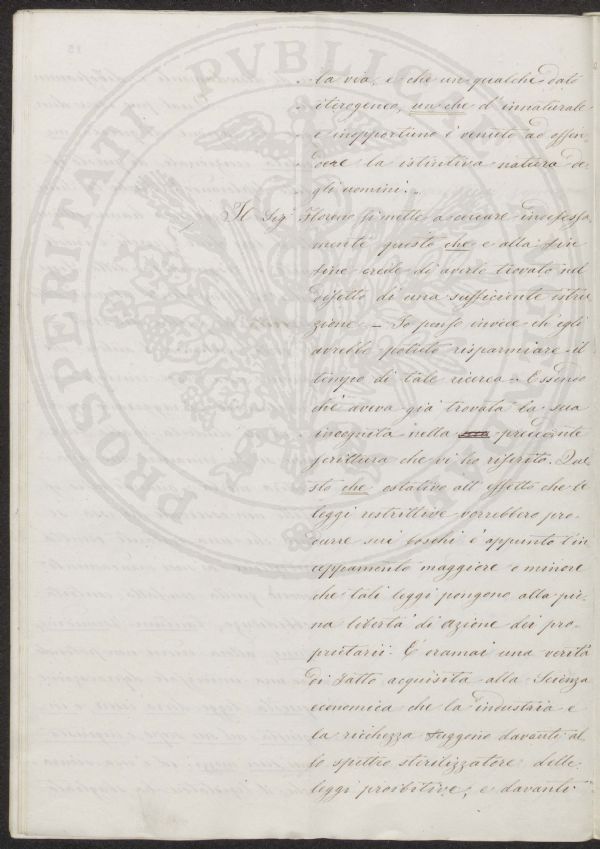 la via, e che un qualche dato
iterogeneo, un che d'innaturale
e inopportuno è venuto ad offen-
dere la istintiva natura de-
gli uomini.
Il Sigr. Floreno si mette a cercare indefessa-
mente questo che e alla fin
fine crede di averlo trovato nel
difetto di una sufficiente istru-
zione. - Io penso invece ch'egli
avrebbe potuto risparmiare il
tempo di tale ricerca. Essendo
chè aveva già trovata la sua
incognita nella precedente
scrittura che vi ho riferito. Que-
sto che ostativo all'effetto che le
leggi restrittive vorrebbero pro-
durre sui boschi è appunto l'in-
ceppamento maggiore o minore
che tali leggi pongono alla pie-
na libertà di azione dei pro-
prietarii. È oramai una verità
di fatto acquisita alla Scienza
economica che la industria e
la ricchezza fuggono davanti al-
lo spettro sterilizzatore delle
leggi proibitive, e davanti
PROSPERITATI PVBLICAE